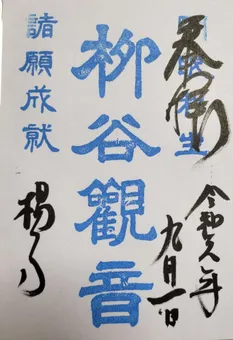 奉拝
令和六年
九月一日
柳谷觀音
諸願成就